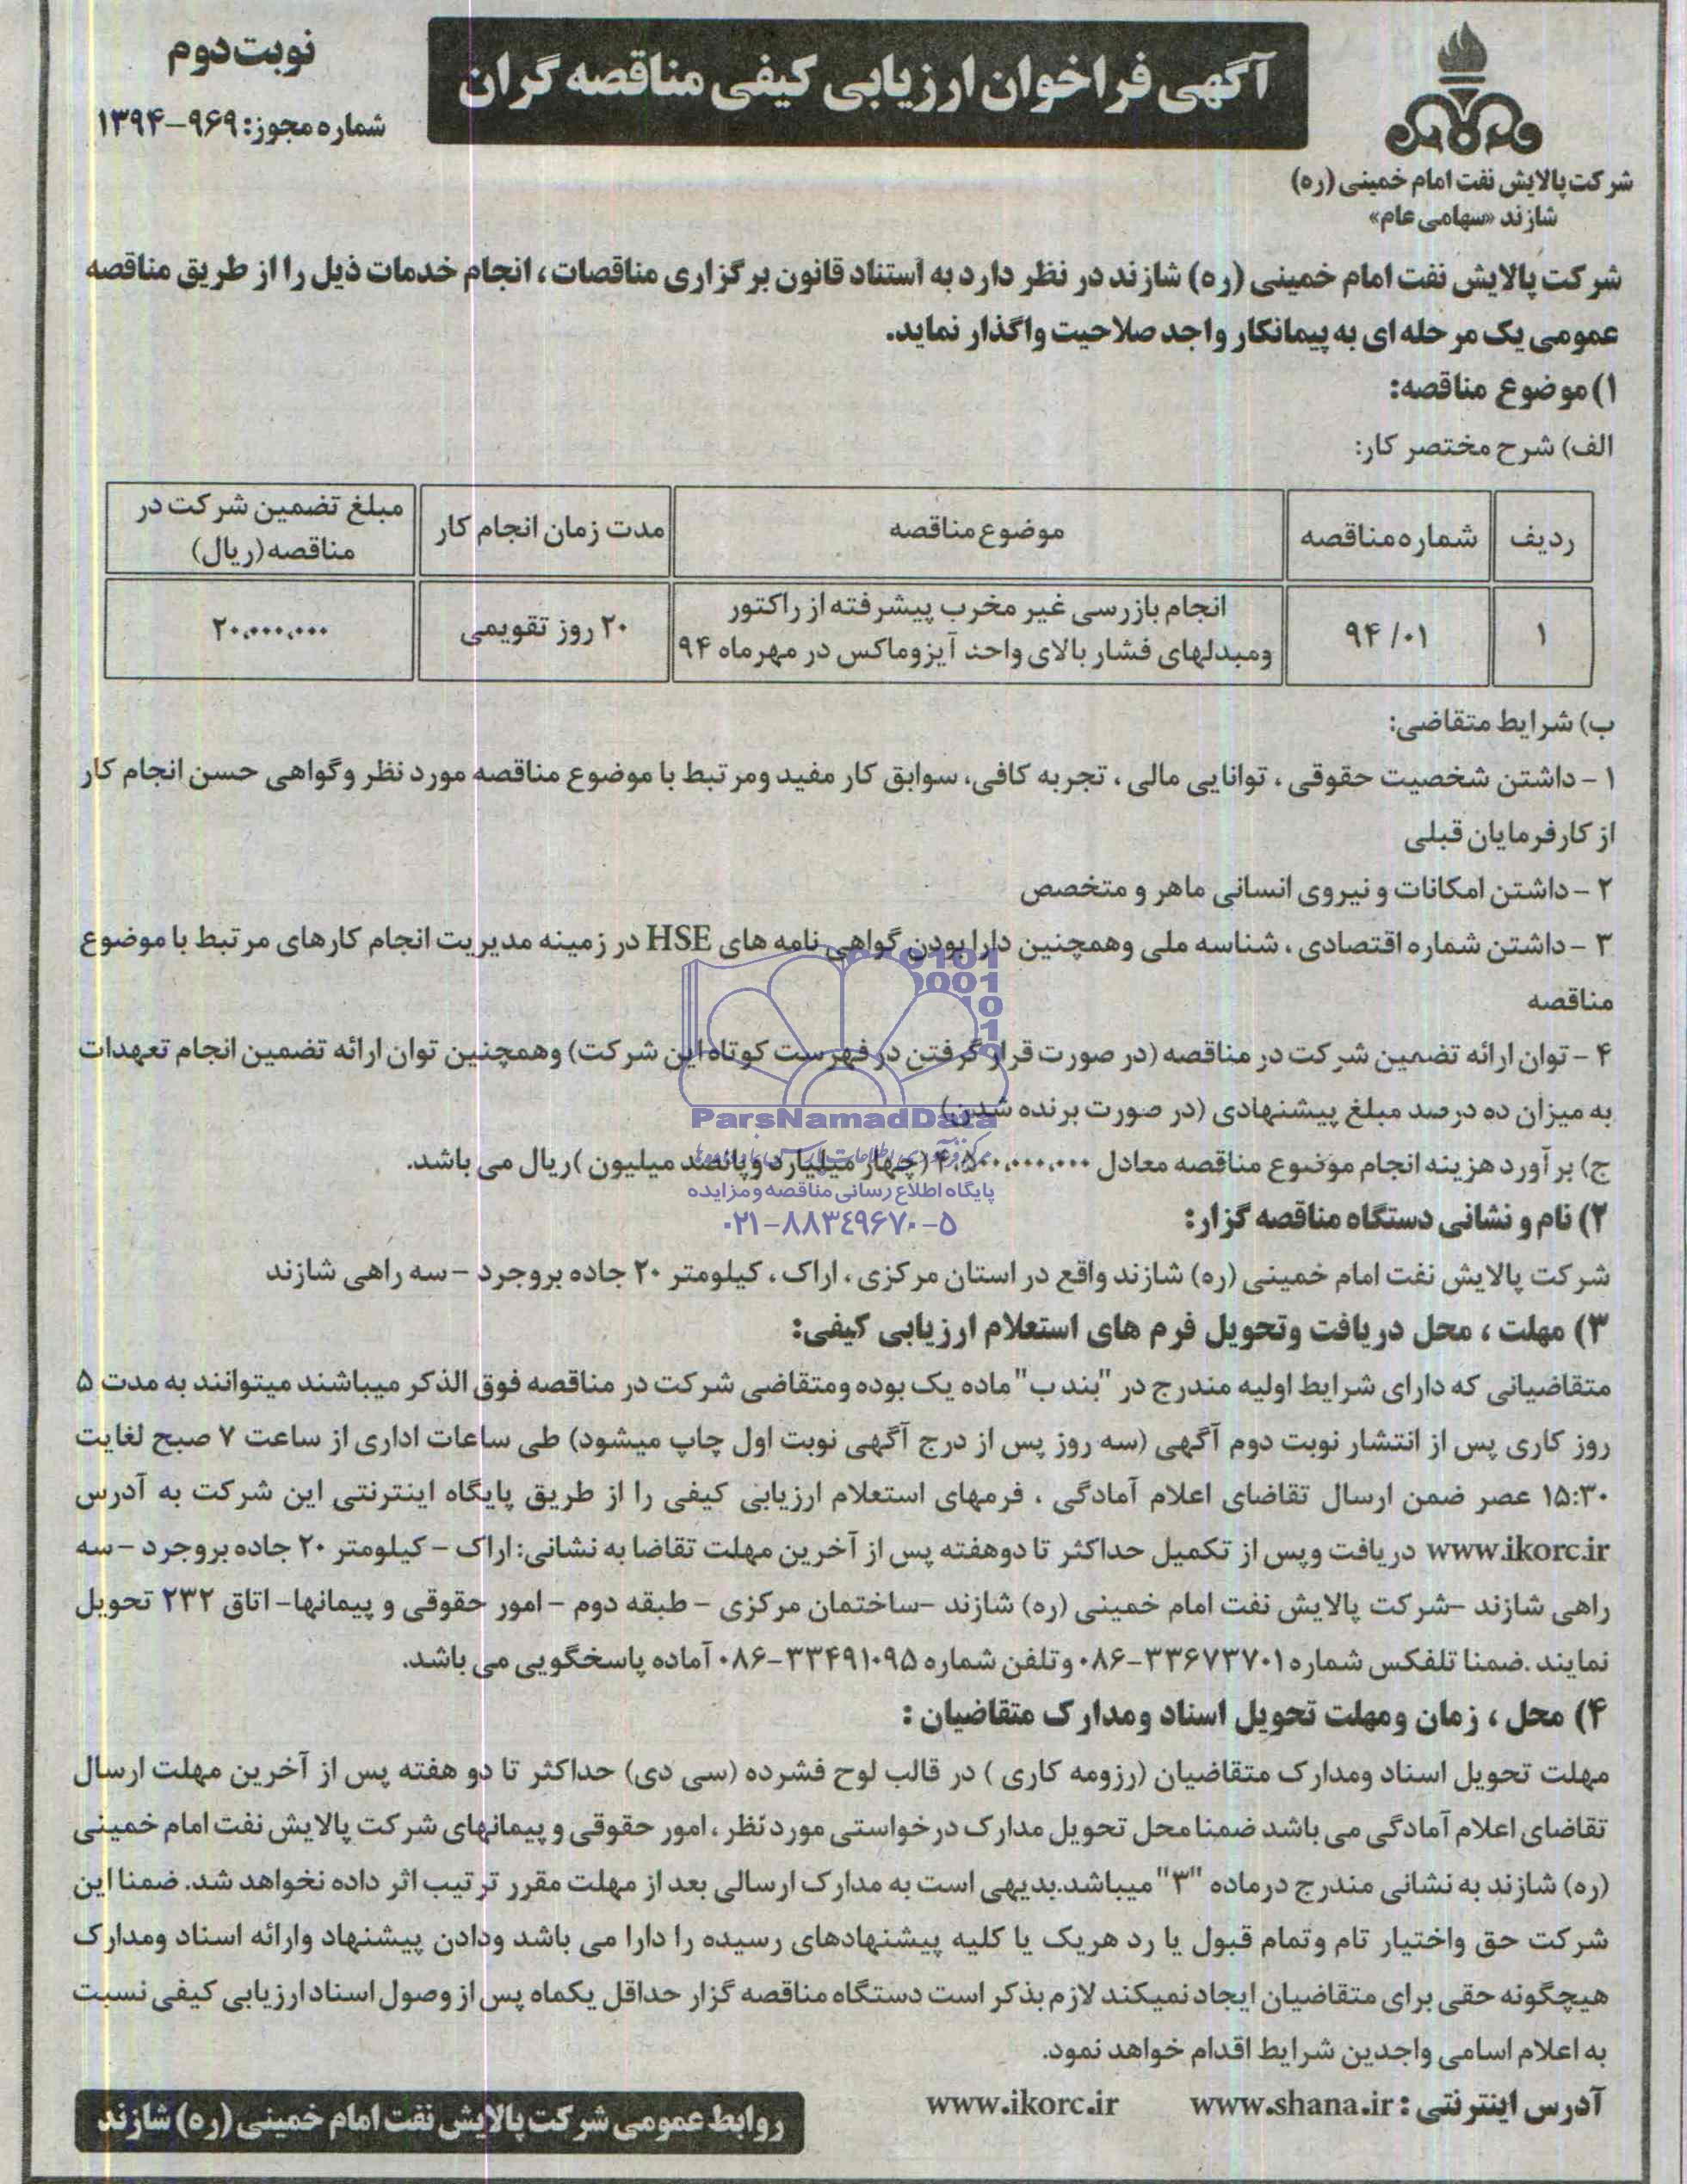 آگهی فراخوان ارزیابی کیفی مناقصه گران
نوبت دوم
شماره مجوز: ۹۶۹-۱۳۹۴
شرکت پالایش نفت امام خمینی (ره)
شازند «سهامی عام»
شرکت پالایش نفت امام خمینی (ره) شازند در نظر دارد به استناد قانون برگزاری مناقصات، انجام خدمات ذیل را از طریق مناقصه
عمومی یک مرحله ای به پیمانکار واجد صلاحیت واگذار نماید.
۱) موضوع مناقصه:
الف) شرح مختصر کار:
ردیف شماره مناقصه موضوع مناقصه مدت زمان انجام کار مبلغ تضمین شرکت در
مناقصه (ریال)
۱ ۹۴/۰۱ انجام بازرسی غیر مخرب پیشرفته از راکتور
ومبدلهای فشار بالای واحد آیزوماکس در مهرماه ۹۴ ۲۰ روز تقویمی ۲۰،۰۰۰،۰۰۰
ب) شرایط متقاضی:
۱ - داشتن شخصیت حقوقی ، توانایی مالی ، تجربه کافی، سوابق کار مفید ومرتبط با موضوع مناقصه مورد نظر وگواهی حسن انجام کار
از کارفرمایان قبلی
۲ - داشتن امکانات و نیروی انسانی ماهر و متخصص
۳ - داشتن شماره اقتصادی ، شناسه ملی وهمچنین دارا بودن گواهی نامه های HSE در زمینه مدیریت انجام کارهای مرتبط با موضوع
مناقصه
۴ - توان ارائه تضمین شرکت در مناقصه (در صورت قرار گرفتن در فهرست کوتاه این شرکت) وهمچنین توان ارائه تضمین انجام تعهدات
به میزان ده درصد مبلغ پیشنهادی (در صورت برنده شدن)
ج) برآورد هزینه انجام موضوع مناقصه معادل ۴،۵۰۰،۰۰۰،۰۰۰ (چهار میلیارد وپانصد میلیون )ریال می باشد.
ParsNamadData
پایگاه اطلاع رسانی مناقصه و مزایده
۰۲۱-۸۸۳۴۹۶۷۰-۵
۲) نام و نشانی دستگاه مناقصه گزار:
شرکت پالایش نفت امام خمینی (ره) شازند واقع در استان مرکزی ، اراک ، کیلومتر ۲۰ جاده بروجرد - سه راهی شازند
۳) مهلت ، محل دریافت وتحویل فرم های استعلام ارزیابی کیفی:
متقاضیانی که دارای شرایط اولیه مندرج در "بند ب" ماده یک بوده ومتقاضی شرکت در مناقصه فوق الذکر میباشند میتوانند به مدت ۵
روز کاری پس از انتشار نوبت دوم آگهی (سه روز پس از درج آگهی نوبت اول چاپ میشود) طی ساعات اداری از ساعت ۷ صبح لغایت
۱۵:۳۰ عصر ضمن ارسال تقاضای اعلام آمادگی ، فرمهای استعلام ارزیابی کیفی را از طریق پایگاه اینترنتی این شرکت به آدرس
www.ikorc.ir دریافت وپس از تکمیل حداکثر تا دوهفته پس از آخرین مهلت تقاضا به نشانی: اراک - کیلومتر ۲۰ جاده بروجرد - سه
راهی شازند -شرکت پالایش نفت امام خمینی (ره) شازند -ساختمان مرکزی - طبقه دوم - امور حقوقی و پیمانها- اتاق ۲۳۲ تحویل
نمایند .ضمنا تلفکس شماره ۳۳۶۷۳۷۰۱-۰۸۶ وتلفن شماره ۳۳۴۹۱۰۹۵-۰۸۶ آماده پاسخگویی می باشد.
۴) محل ، زمان ومهلت تحویل اسناد ومدارک متقاضیان :
مهلت تحویل اسناد ومدارک متقاضیان (رزومه کاری ) در قالب لوح فشرده (سی دی) حداکثر تا دو هفته پس از آخرین مهلت ارسال
تقاضای اعلام آمادگی می باشد ضمنا محل تحویل مدارک درخواستی مورد نظر ، امور حقوقی و پیمانهای شرکت پالایش نفت امام خمینی
(ره) شازند به نشانی مندرج درماده "۳" میباشد.بدیهی است به مدارک ارسالی بعد از مهلت مقرر ترتیب اثر داده نخواهد شد. ضمنا این
شرکت حق واختیار تام وتمام قبول یا رد هریک یا کلیه پیشنهادهای رسیده را دارا می باشد ودادن پیشنهاد وارائه اسناد ومدارک
هیچگونه حقی برای متقاضیان ایجاد نمیکند لازم بذکر است دستگاه مناقصه گزار حداقل یکماه پس از وصول اسناد ارزیابی کیفی نسبت
به اعلام اسامی واجدین شرایط اقدام خواهد نمود.
آدرس اینترنتی : www.shana.ir www.ikorc.ir
روابط عمومی شرکت پالایش نفت امام خمینی (ره) شازند